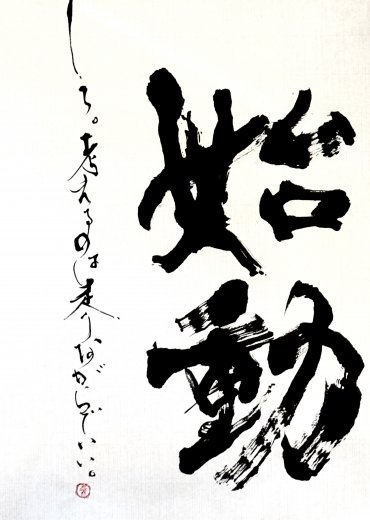 始動
しろ。考えるのは走りながらでいい。